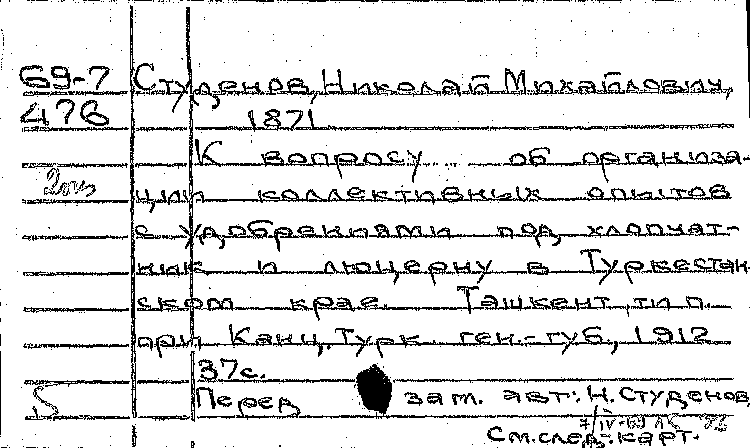 69-7 Студенов, Николай Михайлович,
476 1871
К вопросу об организа-
2 циии коллективных опытов
с удобрениями под хлопчат-
ник и люцерну в Туркестан
ском крае. Ташкент, тип.
при Канц. Турк. ген.-губ., 1912
37с.
Перед заг. авт.: Н. Студенов
См. след. карт.